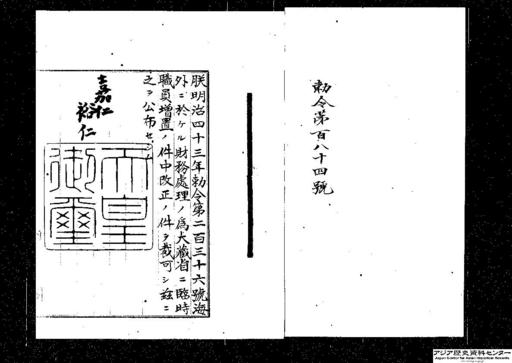 勅令第百八十四號
朕明治四十三年勅令第二百三十六號海
外ニ於ケル財務處理ノ爲大藏省ニ臨時
職員增置ノ件中改正ノ件ヲ裁可シ茲ニ
之ヲ公布セシム
嘉仁
裕仁
天皇
御璽
アジア歴史資料センター
Japan Center for Asian Historical Records